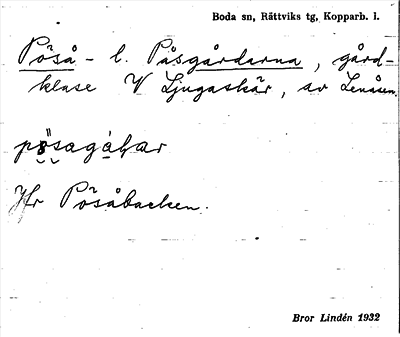 Boda sn, Rättviks tg, Kopparb. l.
Påså- l. Påsgårdarna, gård-
klase V Ljugaskär, av Lenåsen.
Jfr Pösåbacken.
Bror Lindén 1932